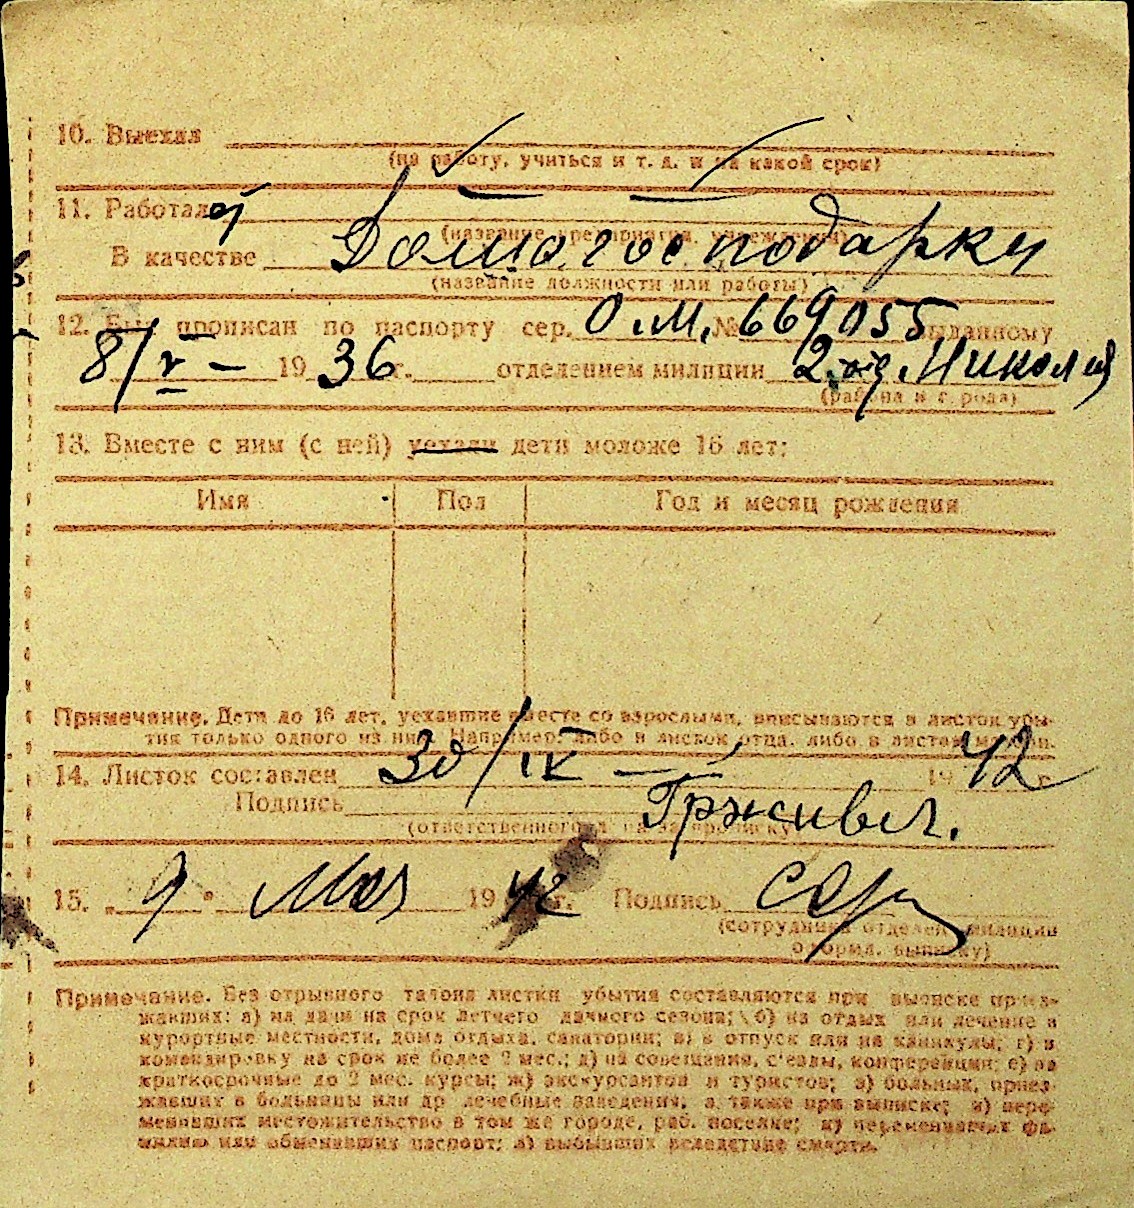 10. Выехал
(на работу, учиться и т. д. и на какой срок)
11. Работал
(название предприятия, учреждения)
В качестве Домогосподарки
(название должности или работы)
12. Был прописан по паспорту сер. О.М. № 669055 выданному
8/V – 1936 г. отделением милиции 2 от. Николая
(района и города)
13. Вместе с ним (с ней) уехали дети моложе 16 лет:
Имя Пол Год и месяц рождения
Примечание. Дети до 16 лет, уехавшие вместе со взрослыми, вписываются в листок убы-
тия только одного из них. Например: либо в листок отца, либо в листок матери.
14. Листок составлен 30/IV – 1942 г.
Подпись
(ответственного лица за прописку)
15. „9" Мая 1942 г. Подпись
(сотрудника отделен. милиции
оформл. выписку)
Примечание. Без отрывного талона листки убытия составляются при выписке приез-
жавших: а) на дачи на срок летнего дачного сезона; б) на отдых или лечение в
курортные местности, дома отдыха, санатории; в) в отпуск или на каникулы; г) в
командировку на срок не более 2 мес.; д) на совещания, съезды, конференции; е) на
краткосрочные до 2 мес. курсы; ж) экскурсантов и туристов; з) больных, приез-
жавших в больницы или др лечебные заведения, а также при выписке; и) пере-
менивших местожительство в том же городе, раб. поселке; к) переменивших фа-
милию или обменявших паспорт; л) выбывших вследствие смерти.